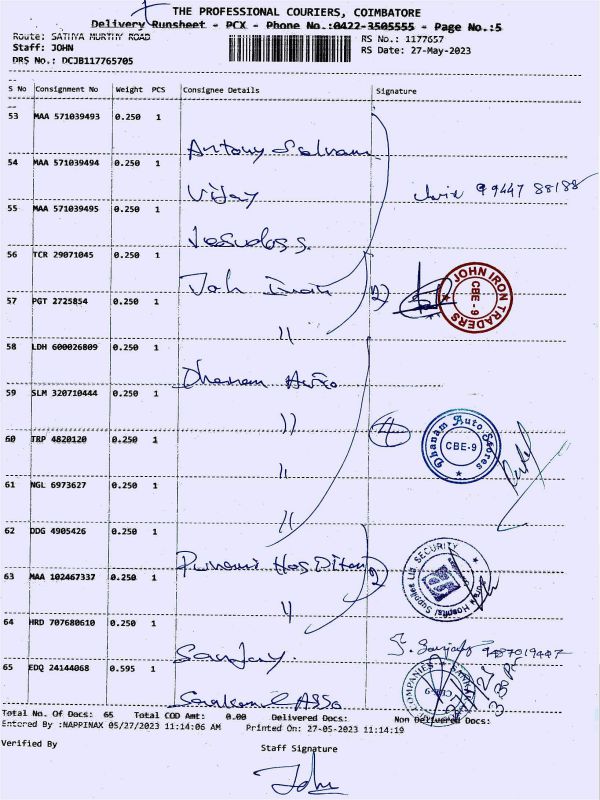 THE PROFESSIONAL COURIERS, COIMBATORE
Delivery Runsheet - PCX - Phone No.:0422-3505555 - Page No.:5
Route: SATHYA MURTHY ROAD
RS No.: 1177657
Staff: JOHN
RS Date: 27-May-2023
DRS No.: DCJB117765705
S No Consignment No Weight PCS Consignee Details Signature
53 MAA 571039493 0.250 1
Antony Selvam
54 MAA 571039494 0.250 1
Vijay
99447 88188
55 MAA 571039495 0.250 1
Jesudas s.
56 TCR 29071045 0.250 1
Joh
2
JOHN IRON TRADERS
CBE - 9
57 PGT 2725854 0.250 1
"
58 LDH 600026809 0.250 1
Dhanam Auto
59 SLM 320710444 0.250 1
"
4
Dhanam Auto Stores
CBE-9
60 TRP 4820120 0.250 1
"
61 NGL 6973627 0.250 1
"
62 DDG 4905426 0.250 1
2
SECURITY
Hospital Supplies Ltd.
63 MAA 102467337 0.250 1
"
64 HRD 707680610 0.250 1
Sanjay
65 EDQ 24144068 0.595 1
COMPANIES
Total No. Of Docs: 65 Total COD Amt: 0.00 Delivered Docs: Non Delivered Docs:
Entered By :NAPPINAX 05/27/2023 11:14:06 AM Printed On: 27-05-2023 11:14:19
Verified By
Staff Signature
John